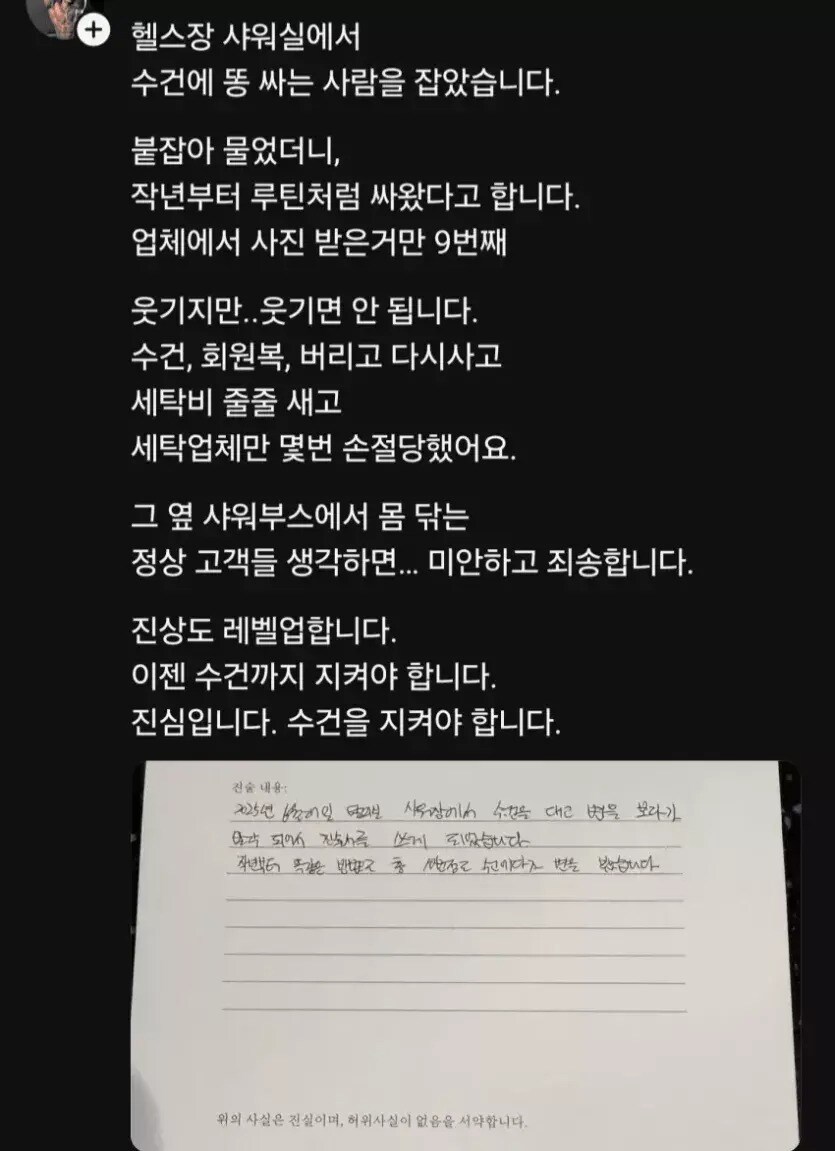 헬스장 샤워실에서
수건에 똥 싸는 사람을 잡았습니다.
붙잡아 물었더니,
작년부터 루틴처럼 싸왔다고 합니다.
업체에서 사진 받은거만 9번째
웃기지만..웃기면 안 됩니다.
수건, 회원복, 버리고 다시사고
세탁비 줄줄 새고
세탁업체만 몇번 손절당했어요.
그 옆 샤워부스에서 몸 닦는
정상 고객들 생각하면... 미안하고 죄송합니다.
진상도 레벨업합니다.
이젠 수건까지 지켜야 합니다.
진심입니다. 수건을 지켜야 합니다.
진술 내용:
2025년 샤워장에서 수건을 대고 변을 보다가
되어서 진술서를 쓰게 되었습니다
작년부터 똑같은 방법으로 총 수건에다가 변을 보았습니다
위의 사실은 진실이며, 허위사실이 없음을 서약합니다.